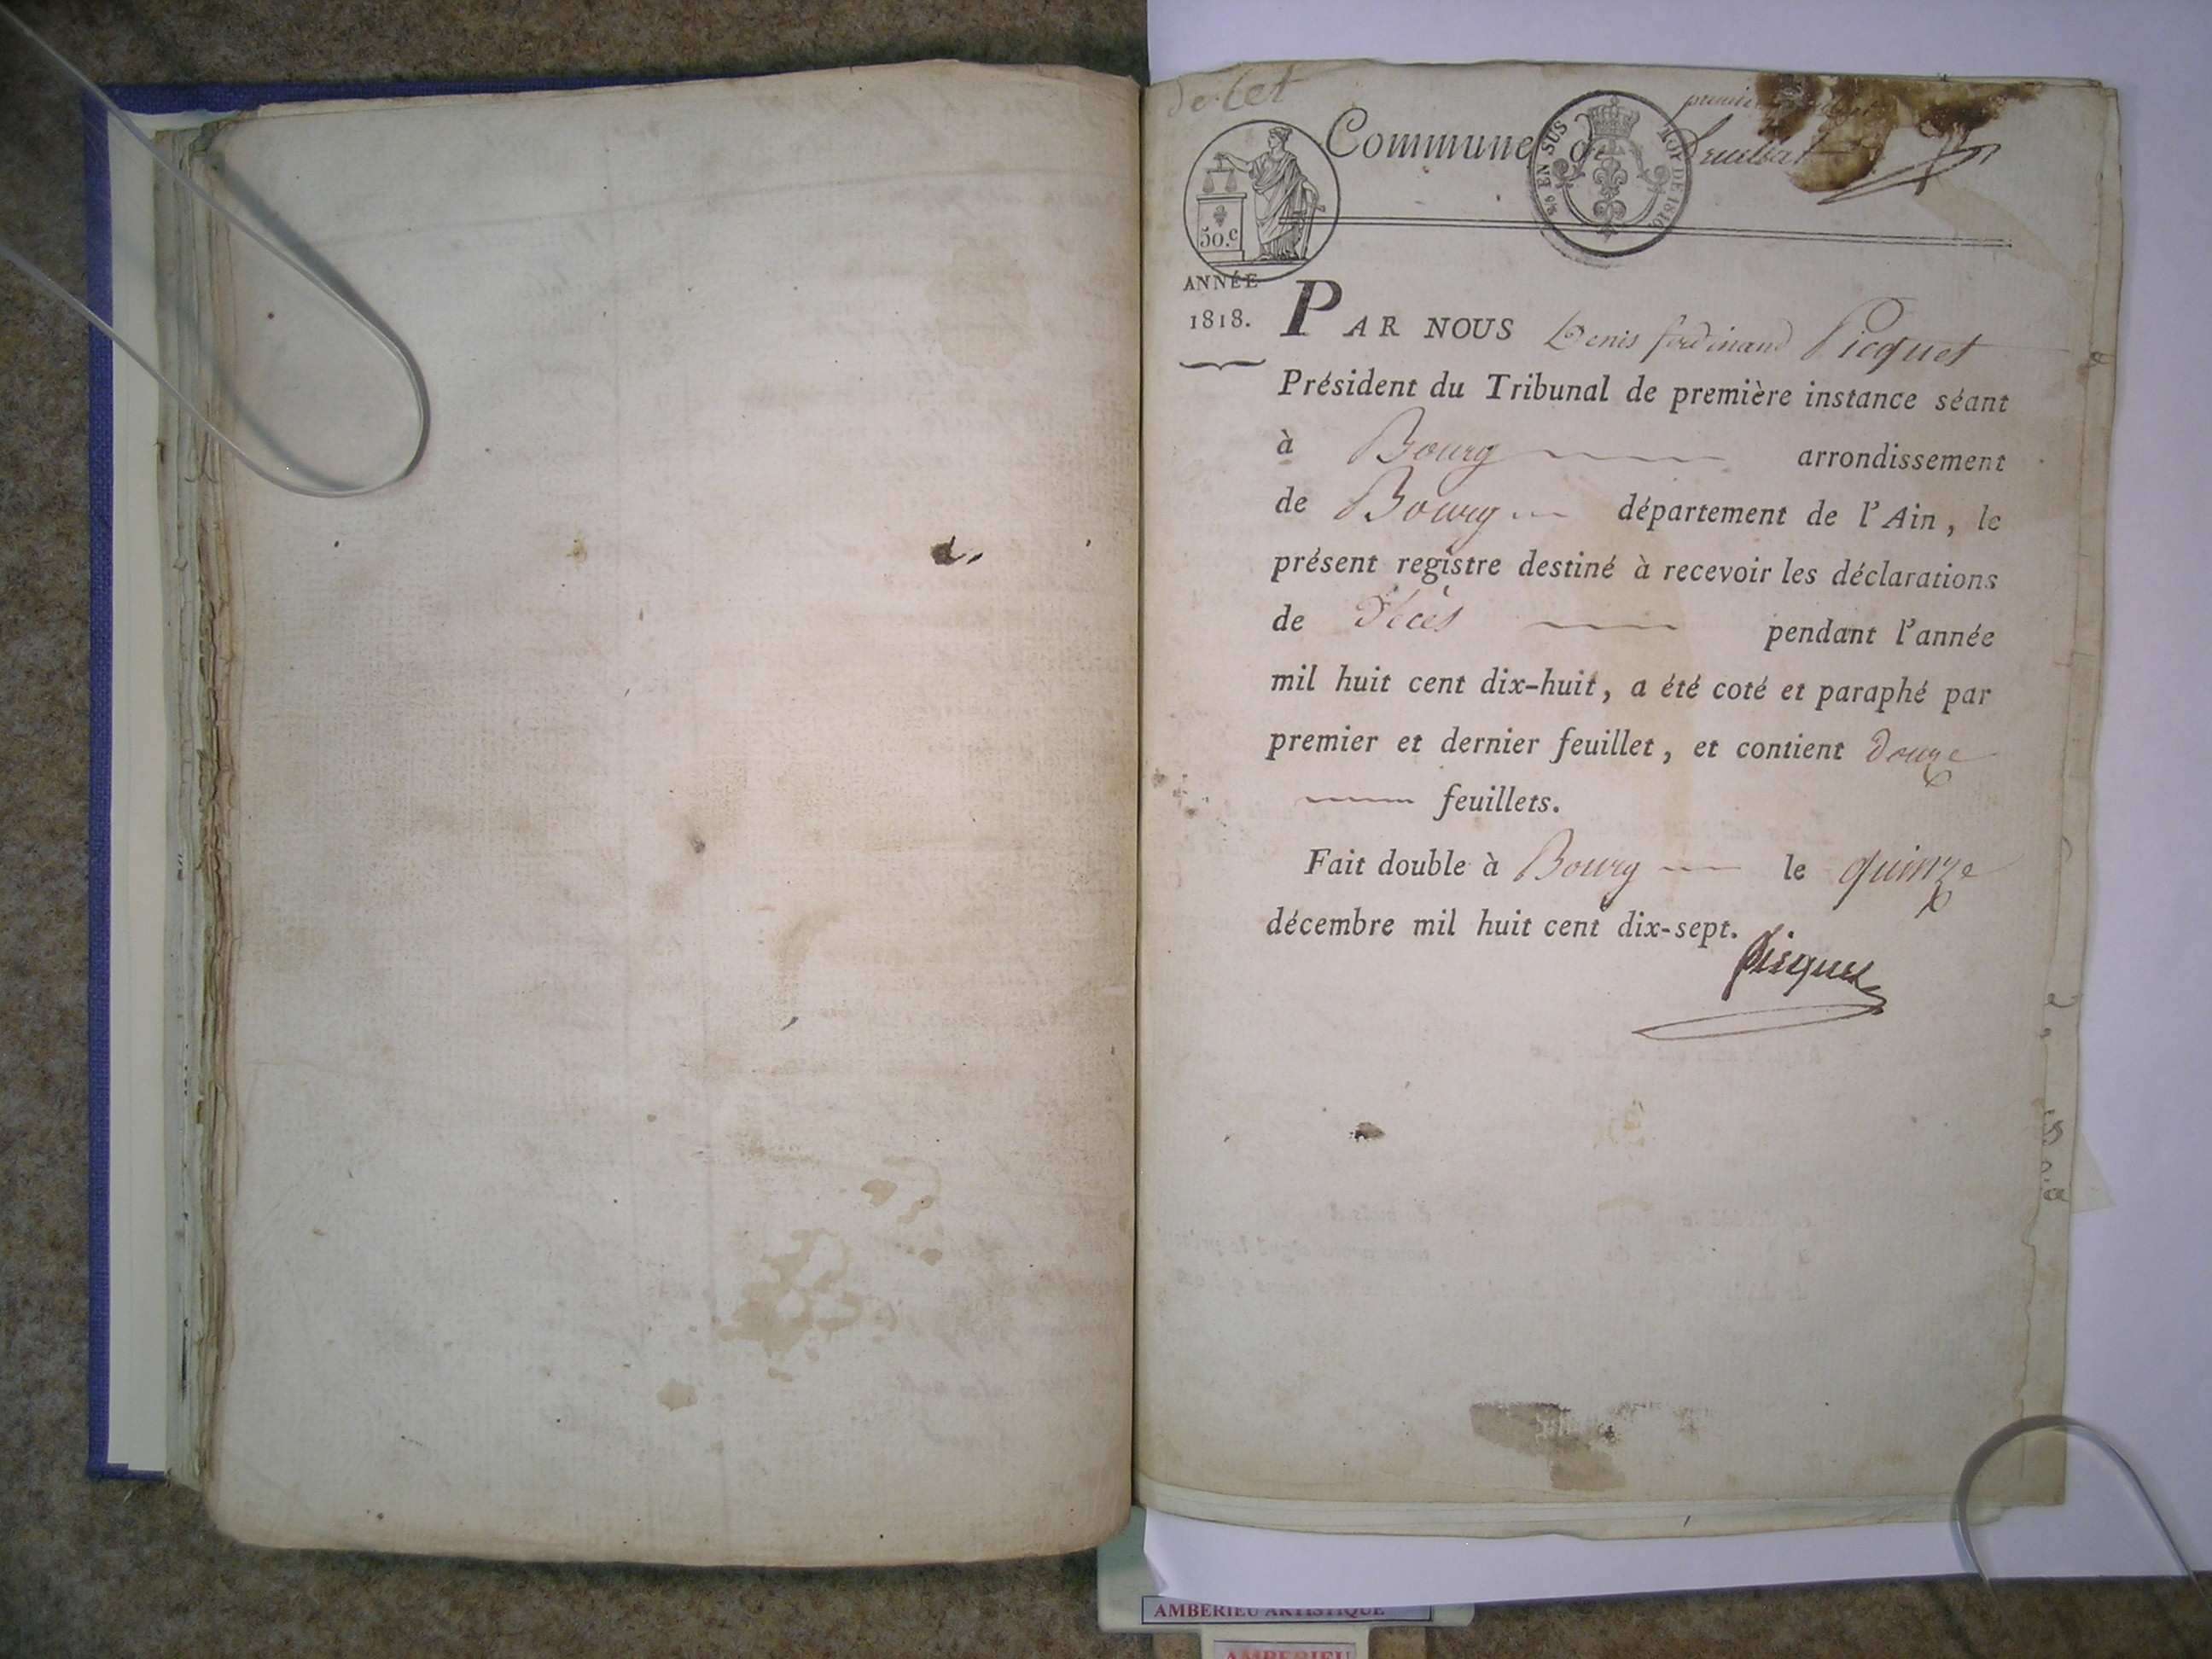 Commune de
EN SUS
TOT. DE 1816
50.c
ANNÉE
1818.
PAR NOUS Denis ferdinand Picquet
Président du Tribunal de première instance séant
à Bourg arrondissement
de Bourg département de l'Ain, le
présent registre destiné à recevoir les déclarations
de Décès pendant l'année
mil huit cent dix-huit, a été coté et paraphé par
premier et dernier feuillet, et contient douze
feuillets.
Fait double à Bourg le quinze
décembre mil huit cent dix-sept.
Picquet
AMBERIEU ARTISTIQUE
AMBERIEU